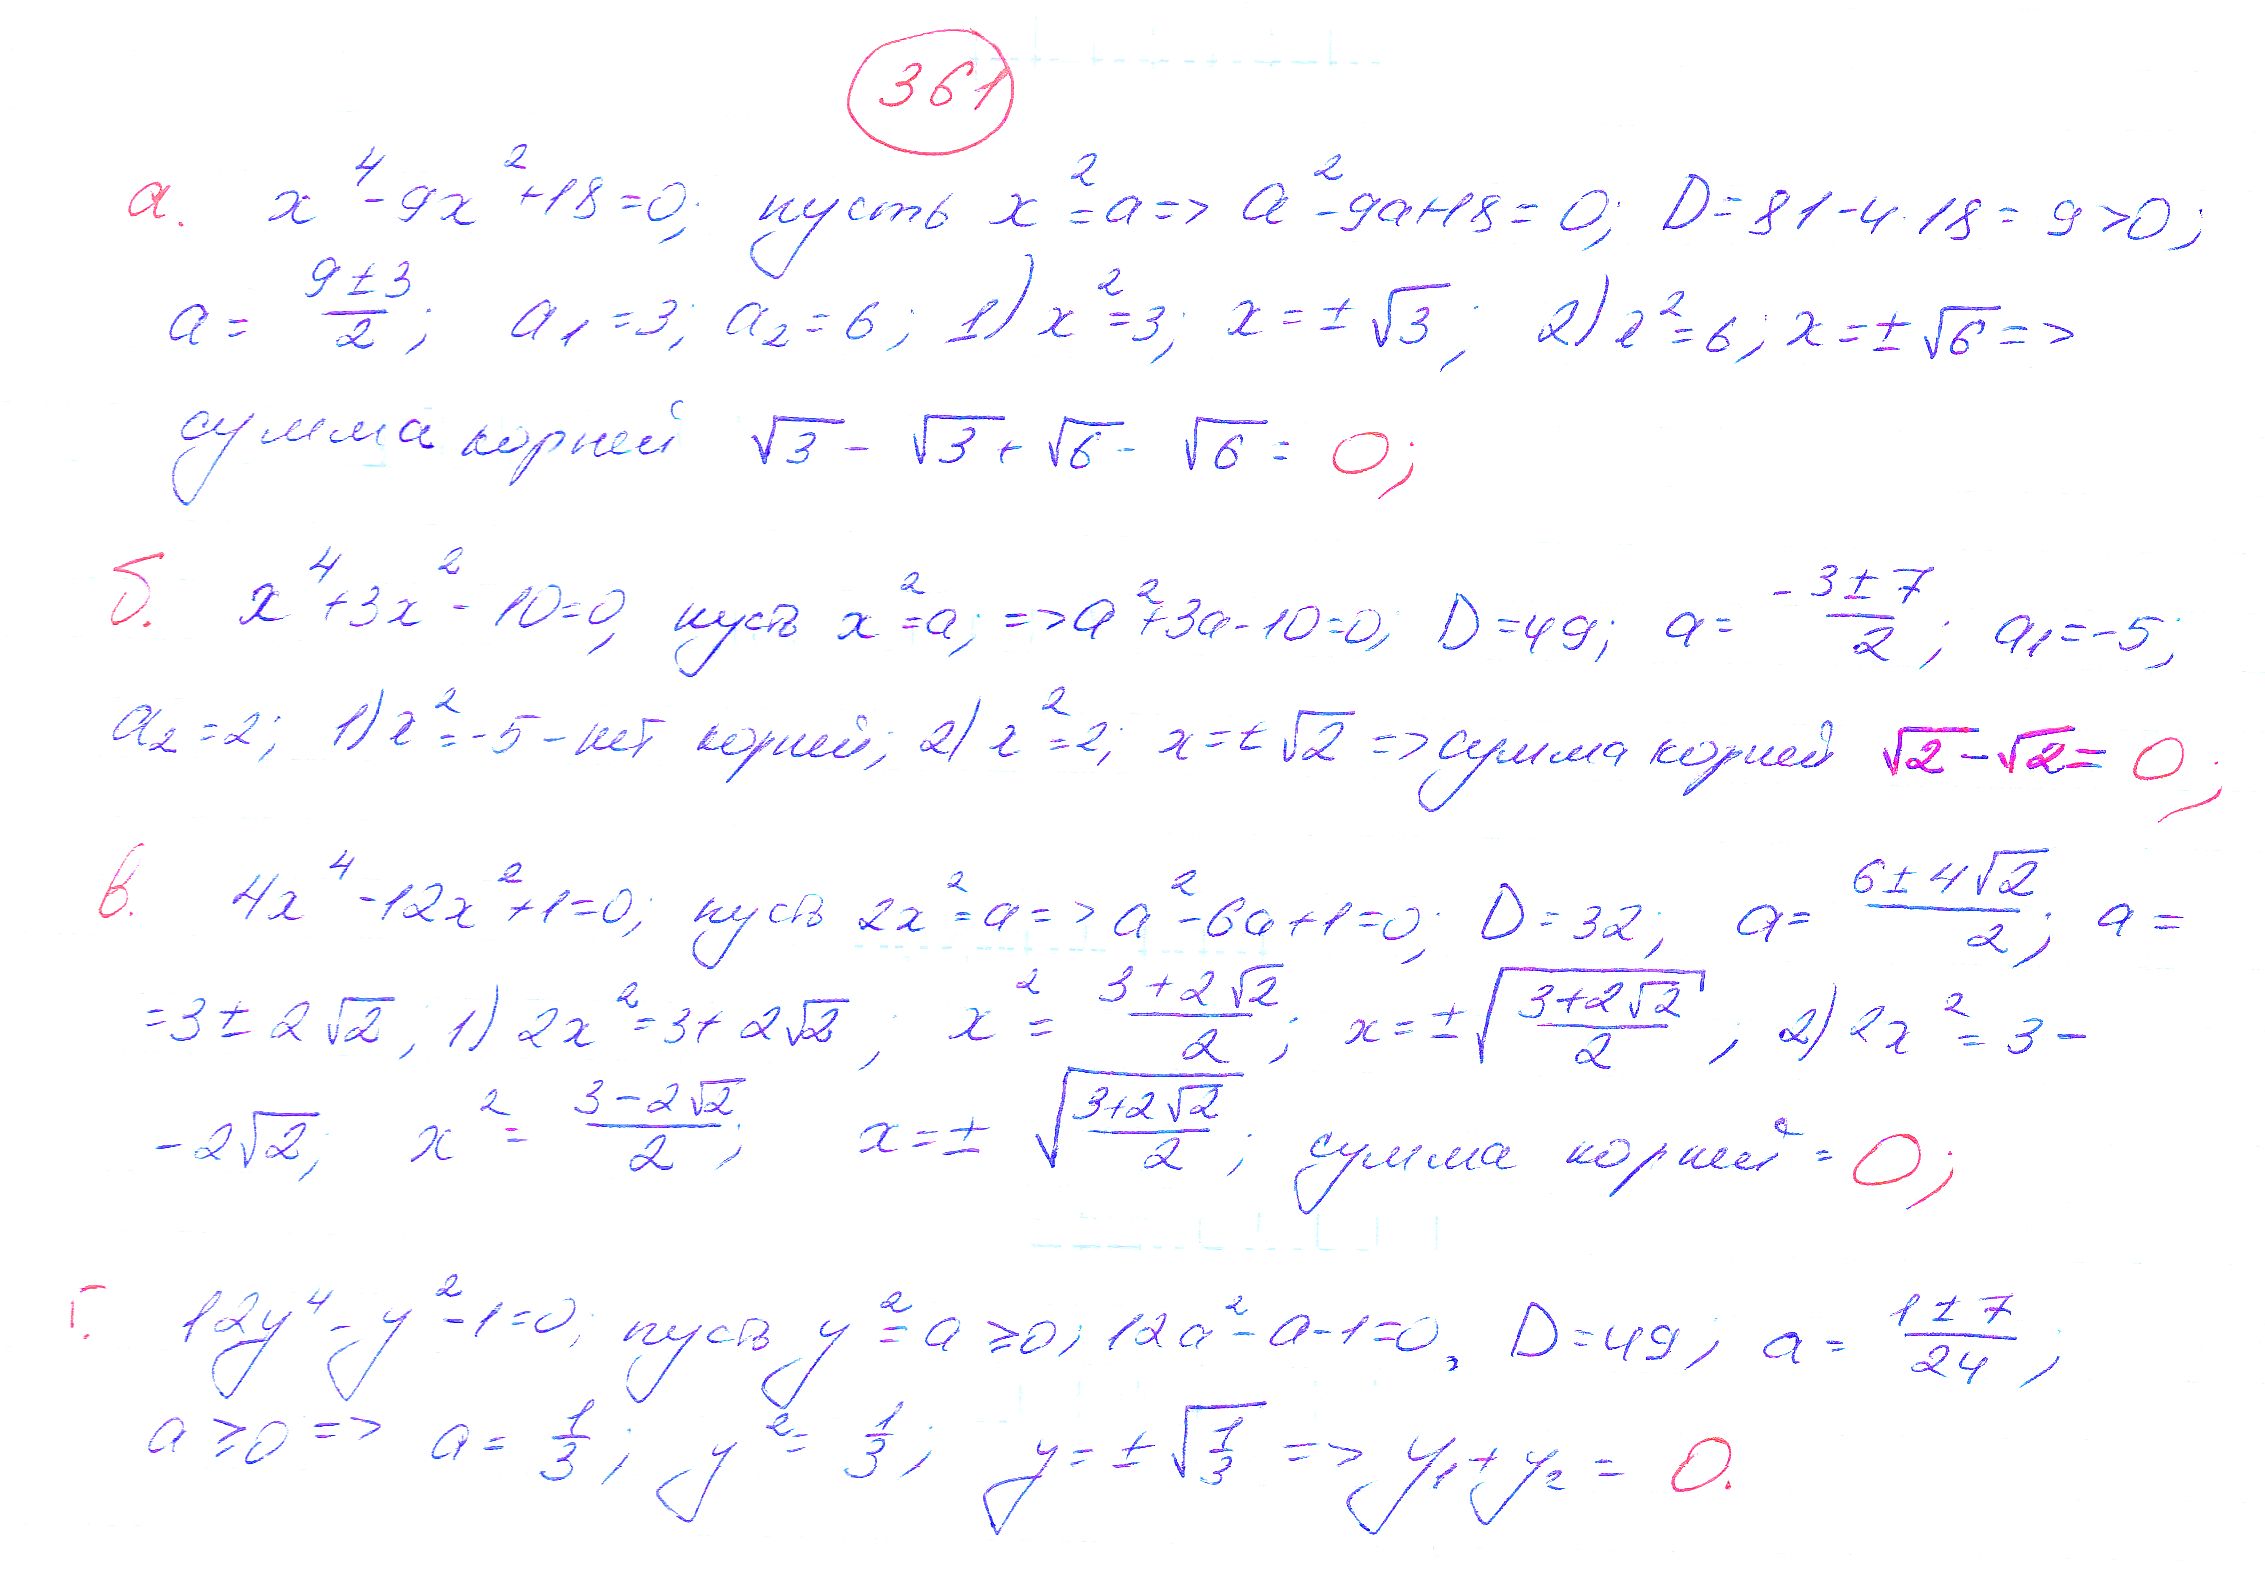 361
а. x⁴-9x²+18=0; пусть x²=a => a²-9a+18=0; D=81-4·18=9>0;
a= (9±3)/2; a₁=3; a₂=6; 1) x²=3; x=±√3; 2) x²=6; x=±√6 =>
сумма корней √3-√3+√6-√6=0;
б. x⁴+3x²-10=0, пусть x²=a; => a²+3a-10=0; D=49; a= (-3±7)/2; a₁=-5;
a₂=2; 1) x²=-5 - нет корней; 2) x²=2; x=±√2 => сумма корней √2-√2=0;
в. 4x⁴-12x²+1=0; пусть 2x²=a => a²-6a+1=0; D=32; a= (6±4√2)/2; a=
=3±2√2; 1) 2x²=3+2√2; x²= (3+2√2)/2; x=±√((3+2√2)/2); 2) 2x²=3-
-2√2; x²= (3-2√2)/2; x=± √((3+2√2)/2); сумма корней=0;
г. 12y⁴-y²-1=0; пусть y²=a≥0; 12a²-a-1=0, D=49; a= (1±7)/24;
a≥0 => a= 1/3; y²= 1/3; y=±√(1/3) => y₁+y₂=0.